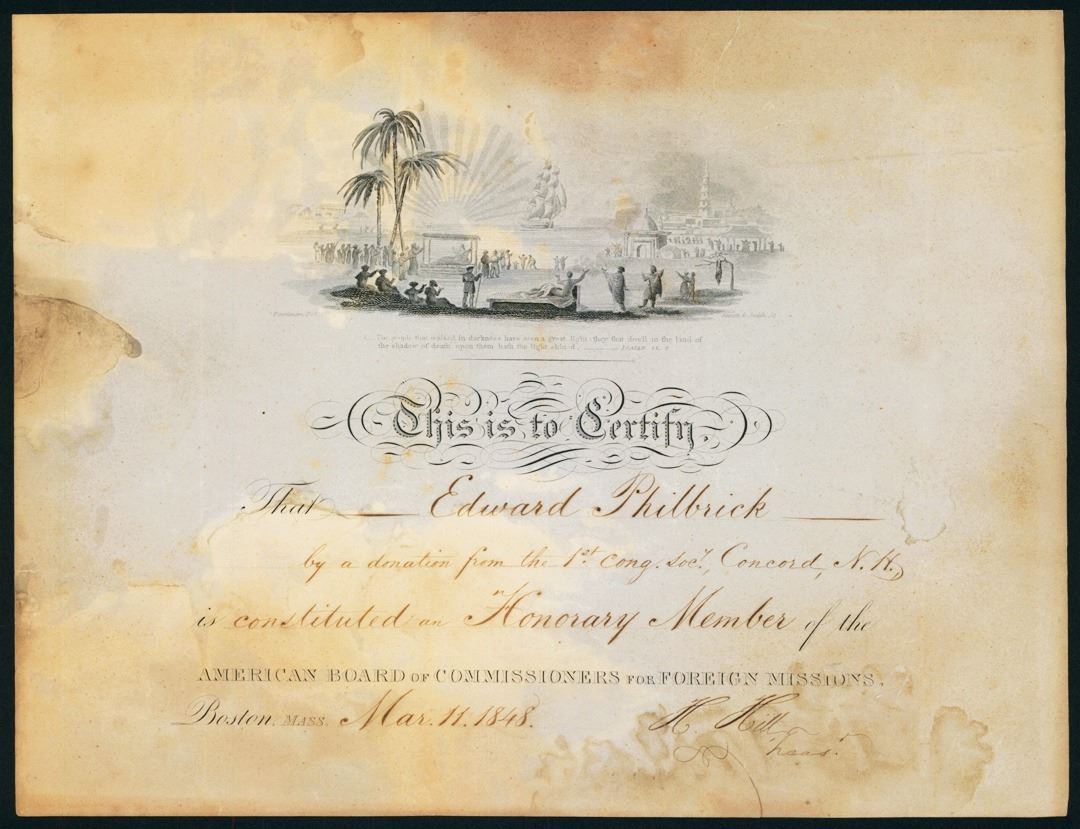 The people that walked in darkness have seen a great light: they that dwell in the land of
the shadow of death, upon them hath the light shined. ISAIAH IX. 2
This is to Certify,
That Edward Philbrick
by a donation from the 1st Cong. Socy., Concord, N. H.
is constituted an Honorary Member of the
AMERICAN BOARD OF COMMISSIONERS FOR FOREIGN MISSIONS.
Boston, MASS. Mar. 11. 1848. H. Hill
Treasr.